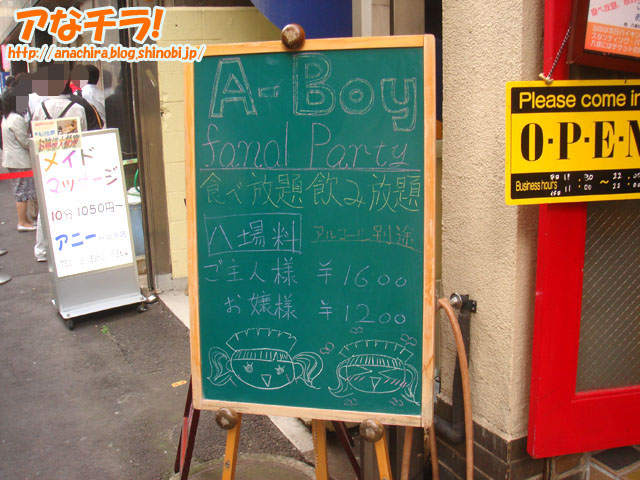 アなチラ!
http://anachira.blog.shinobi.jp/
A-Boy
fanal Party
食べ放題飲み放題
入場料 アルコール別途
ご主人様 ¥1600
お嬢様 ¥1200
メイド
マッサージ
10分 1050円~
アニー
Please come in
OPEN
Business hours
11:30~22:
11:00~22: